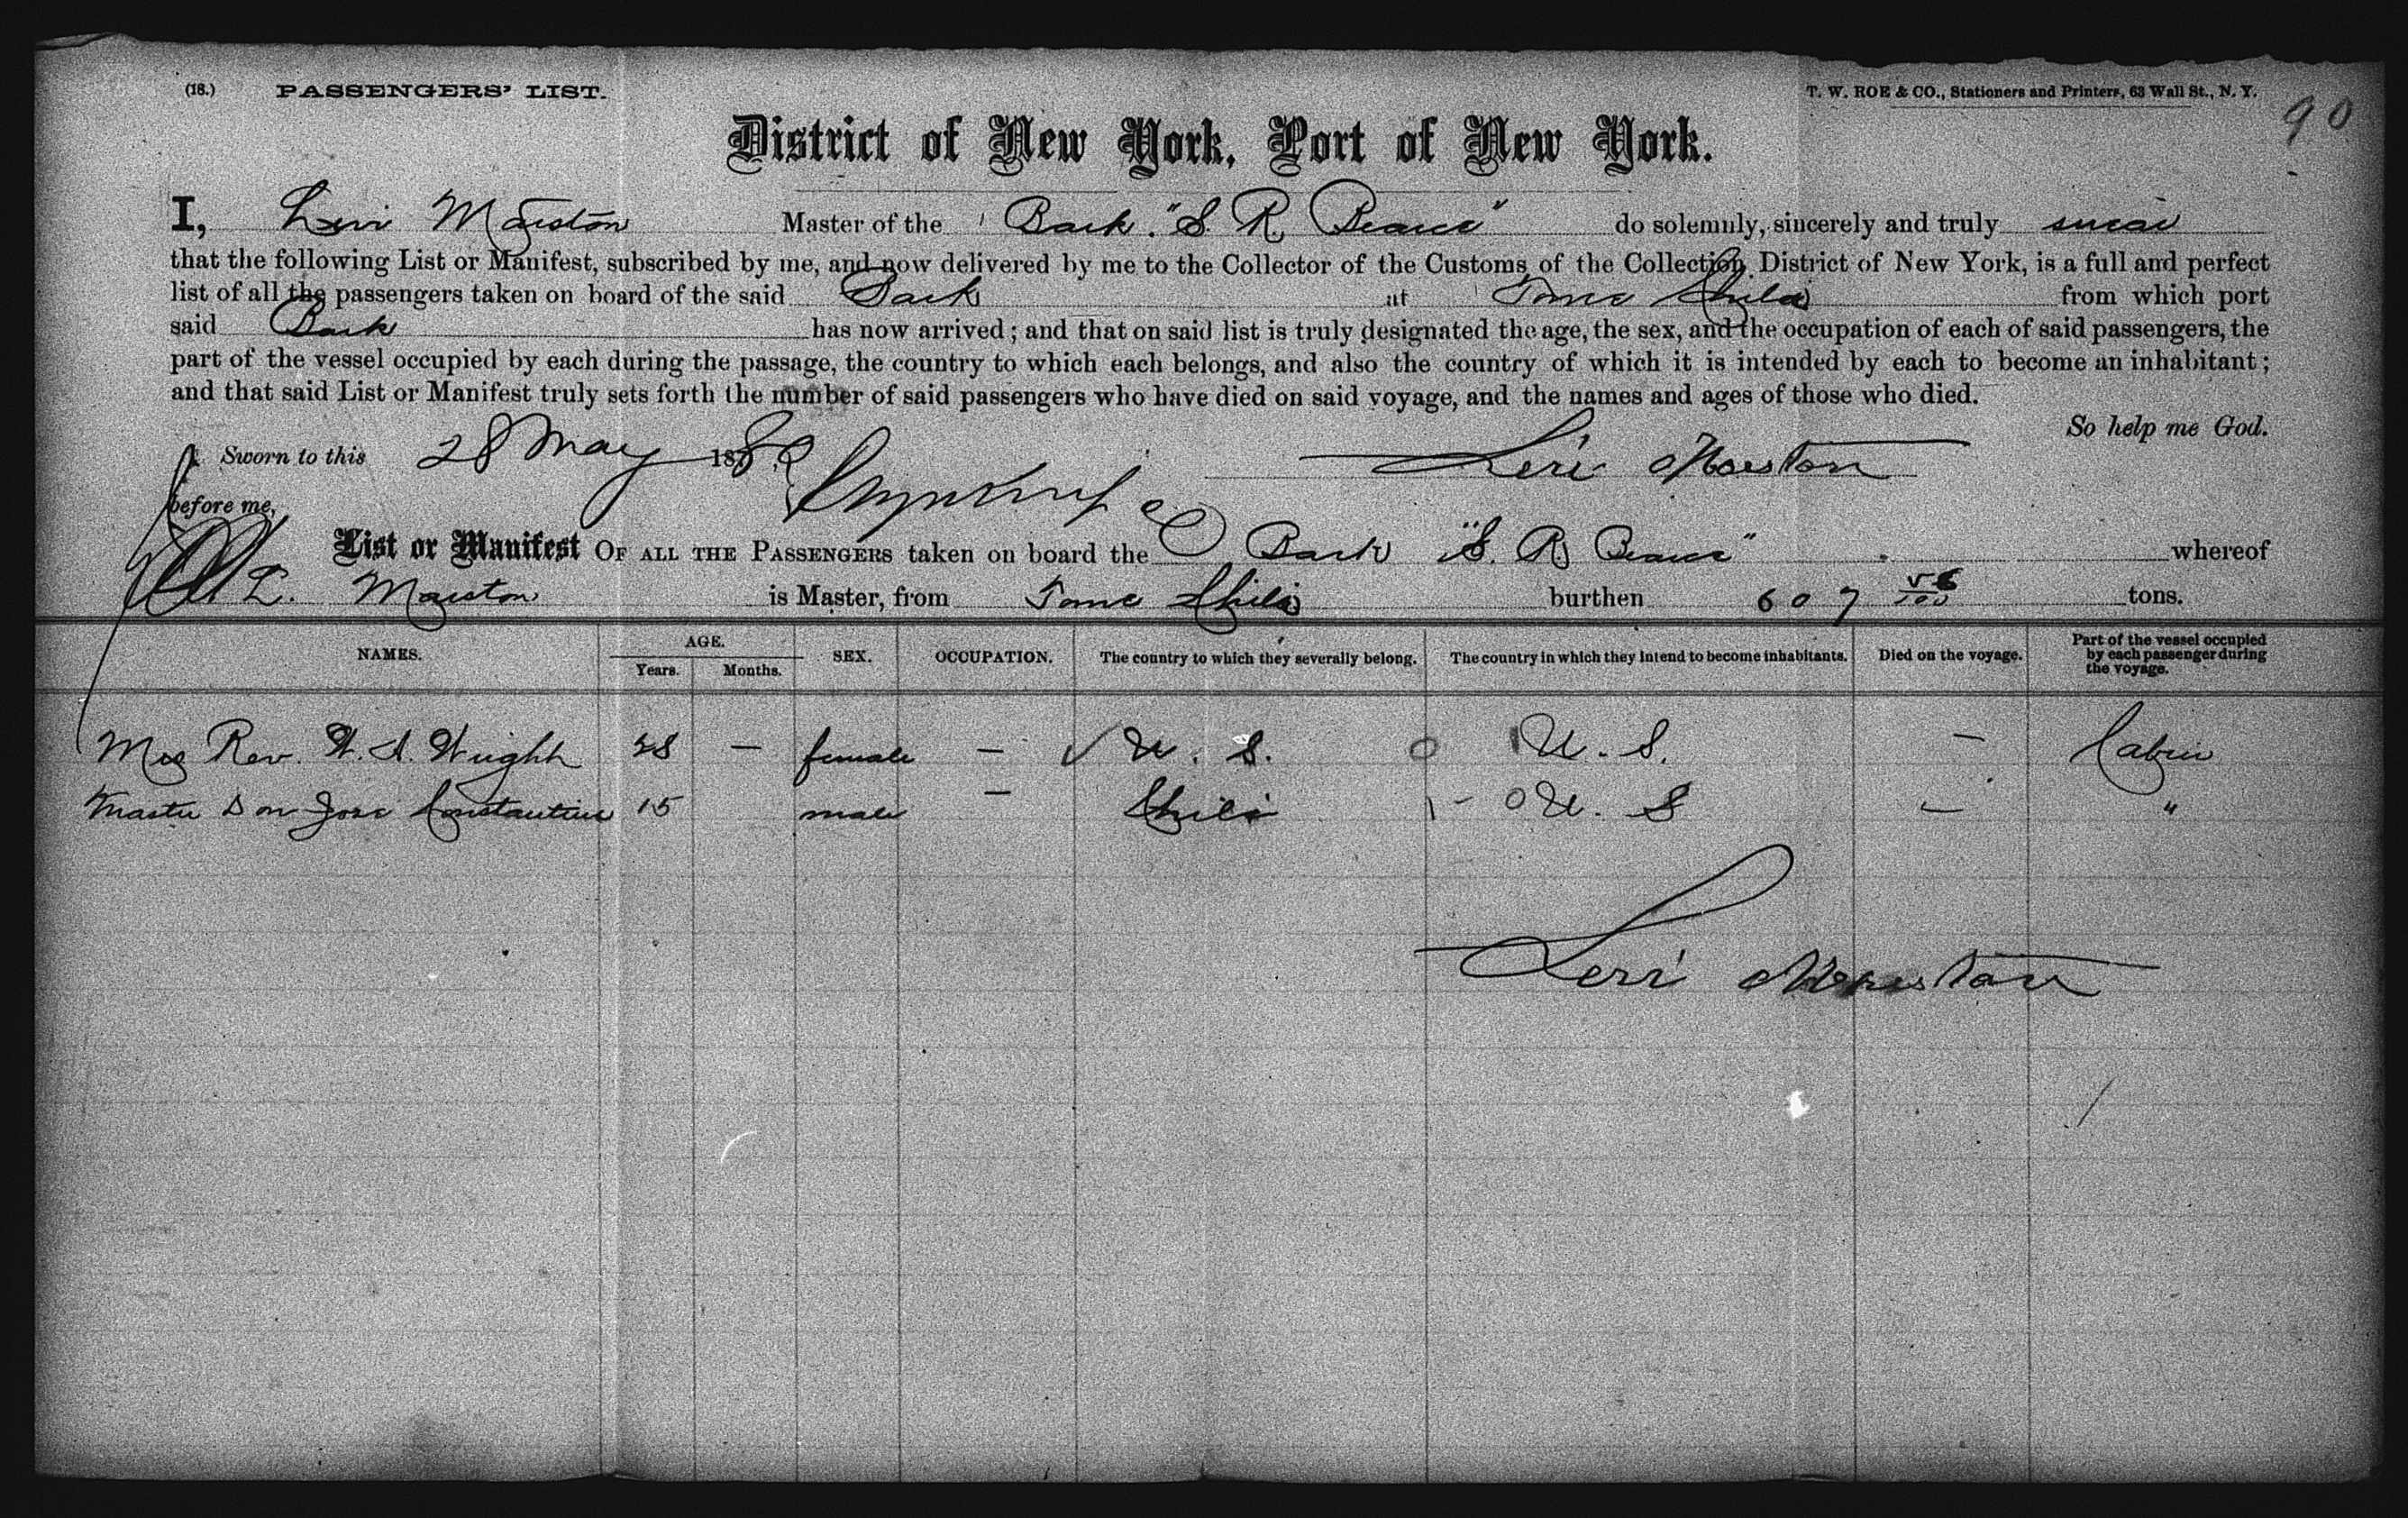 (18.) PASSENGERS' LIST. T. W. ROE & CO., Stationers and Printers, 63 Wall St., N. Y.
90
District of New York, Port of New York.
I, Levi Marston Master of the Bark "S. R. Bearce" do solemnly, sincerely and truly swear
that the following List or Manifest, subscribed by me, and now delivered by me to the Collector of the Customs of the Collection District of New York, is a full and perfect
list of all the passengers taken on board of the said Bark at Tome Chili from which port
said Bark has now arrived; and that on said list is truly designated the age, the sex, and the occupation of each of said passengers, the
part of the vessel occupied by each during the passage, the country to which each belongs, and also the country of which it is intended by each to become an inhabitant;
and that said List or Manifest truly sets forth the number of said passengers who have died on said voyage, and the names and ages of those who died.
So help me God.
Sworn to this 28 May 188 Levi Marston
before me,
List or Manifest OF ALL THE PASSENGERS taken on board the Bark "S. R. Bearce" whereof
L. Marston is Master, from Tome Chili burthen 607 56/100 tons.
NAMES. AGE. Years. Months. SEX. OCCUPATION. The country to which they severally belong. The country in which they intend to become inhabitants. Died on the voyage. Part of the vessel occupied by each passenger during the voyage.
Mrs Rev. W. A. Wright 28 — female — U. S. U. S. — Cabin
Master Don Jose Constantine 15 male — Chili U. S — "
Levi Marston